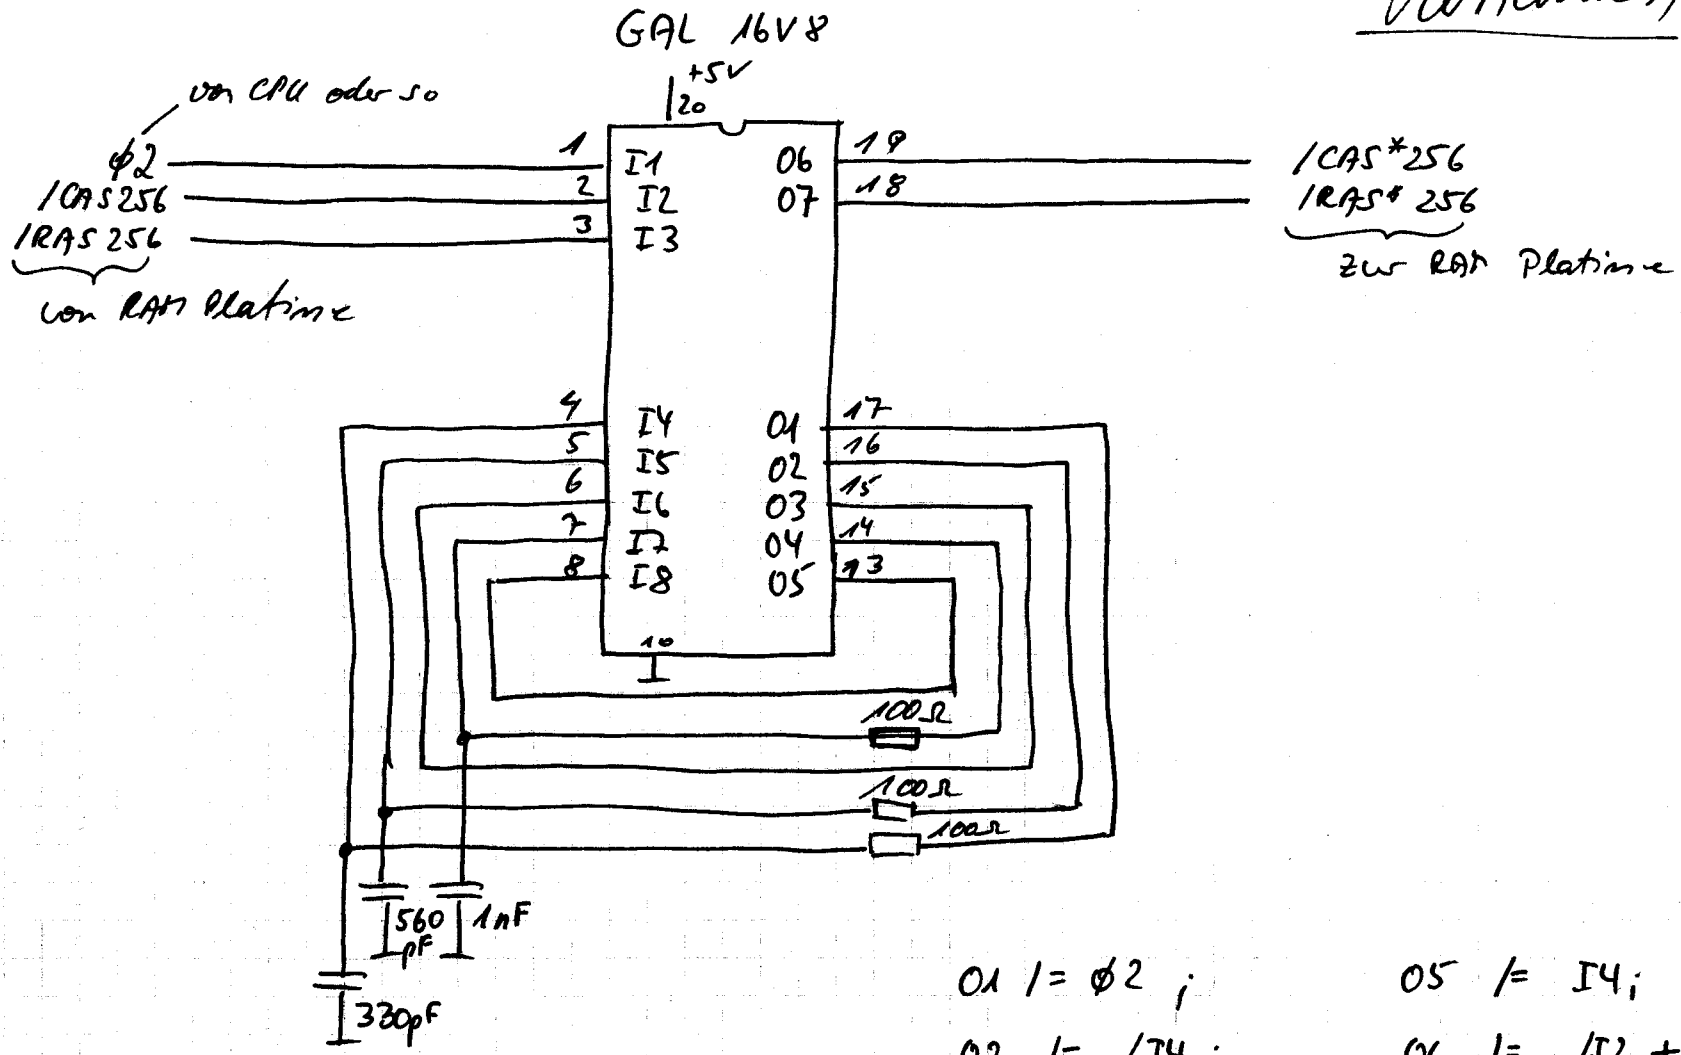 GAL 16V8
+5V
20
von CPU oder so
ϕ2
/CAS256
/RAS256
von RAM Platine
1
2
3
I1
I2
I3
O6
O7
19
18
/CAS*256
/RAS*256
zur RAM Platine
4
5
6
7
8
I4
I5
I6
I7
I8
O1
O2
O3
O4
O5
17
16
15
14
13
10
100Ω
100Ω
100Ω
560
pF
1nF
330pF
O1 /= ϕ2 ;
O5 /= I4;
O2 /= /I4 ;
O6 /= /I2 +